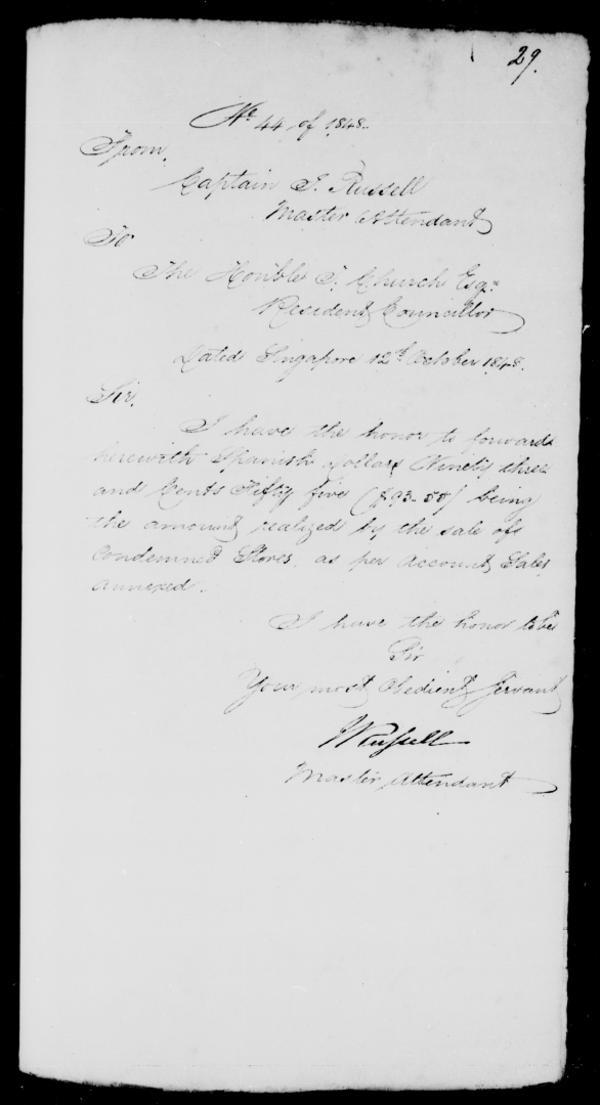 29.
No. 44 of 1848.
From,
Captain J. Russell
Master Attendant
To
The Honble T. Church Esqr.
Resident Councillor
Dated Singapore 12th October 1848.
Sir,
I have the honor to forward
herewith Spanish Dollars Ninety three
and Cents Fifty five ($93-55) being
the amount realized by the sale of
Condemned Stores, as per Account Sales
annexed.
I have the honor to be
Sir
Your most Obedient Servant
JRussell
Master Attendant